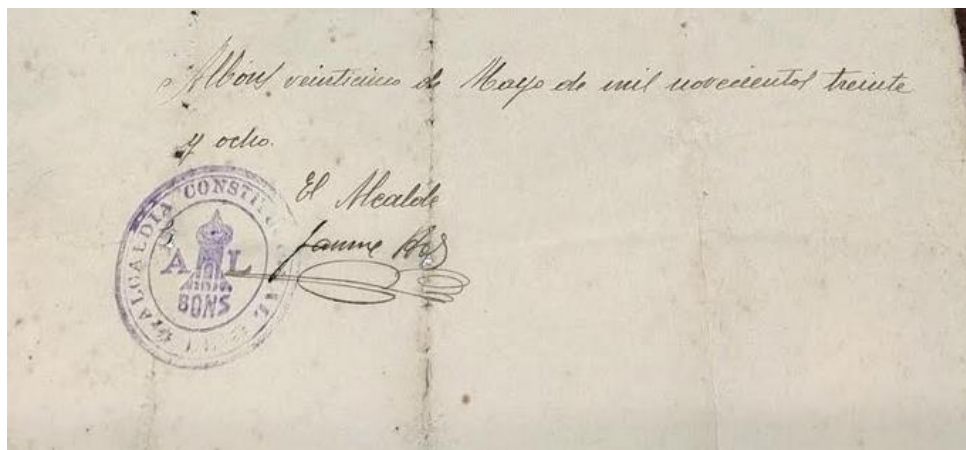 Albóns veinticinco de Mayo de mil novecientos treinta
y ocho.
El Alcalde
Jaume
ALCALDIA CONSTITUCIONAL
A L
BONS